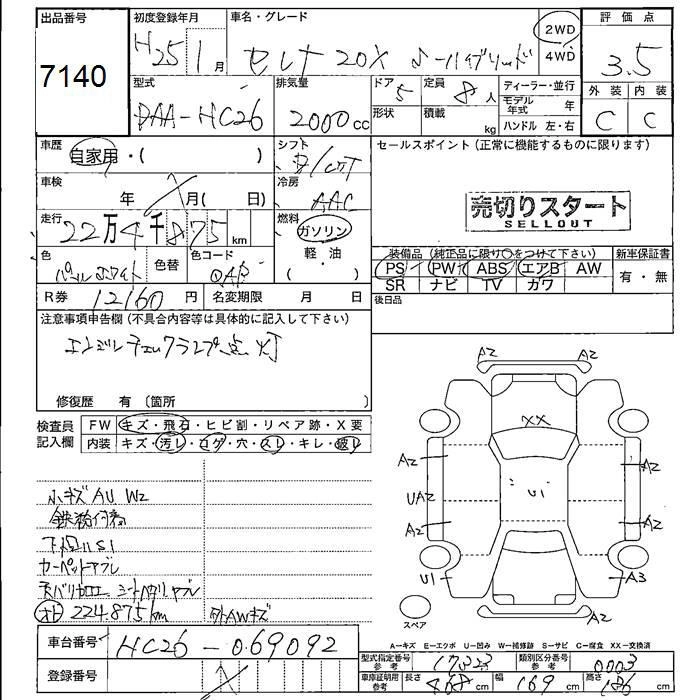 出品番号 初度登録年月 車名・グレード 評価点
7140 H25 1月 セレナ 20X S-ハイブリッド 2WD 4WD 3.5
型式 排気量 ドア 定員 ディーラー・並行 外装 内装
DAA-HC26 2000cc 5 8人 モデル年式 年 C C
形状 積載 kg ハンドル 左・右
車歴 自家用・( ) シフト セールスポイント (正常に機能するものに限ります)
車検 年 月( 日) 冷房 AAC
売切りスタート
SELLOUT
走行 22万4千875km 燃料 ガソリン 軽・油 ( )
装備品 (純正品に限り○をつけて下さい) 新車保証書
色 パールホワイト 色替 色コード QAB
PS PW ABS エアB AW 有・無
SR ナビ TV カワ
R券 12160円 名変期限 月 日 後日品
注意事項申告欄 (不具合内容等は具体的に記入して下さい)
エンジンチェックランプ点灯
修復歴 有 〔箇所 〕
検査員記入欄 FW キズ・飛石・ヒビ割・リペア跡・X要
内装 キズ・汚レ・コゲ・穴・スレ・キレ・破レ
小キズAU W2
下廻りS1
カーペットヤブレ
224.875km 外AWキズ
A2 A2
XX
A2 A2
UA2 Ui
A2 A2
U1 A3
スペア A2
車台番号 HC26-069092
A-キズ E-エクボ U-凹み W-補修跡 S-サビ C-腐食 XX-交換済
登録番号
型式指定番号 参考 17323 類別区分番号 参考 0003
車庫証明用 参考 長さ 468cm 幅 169cm 高さ 186cm